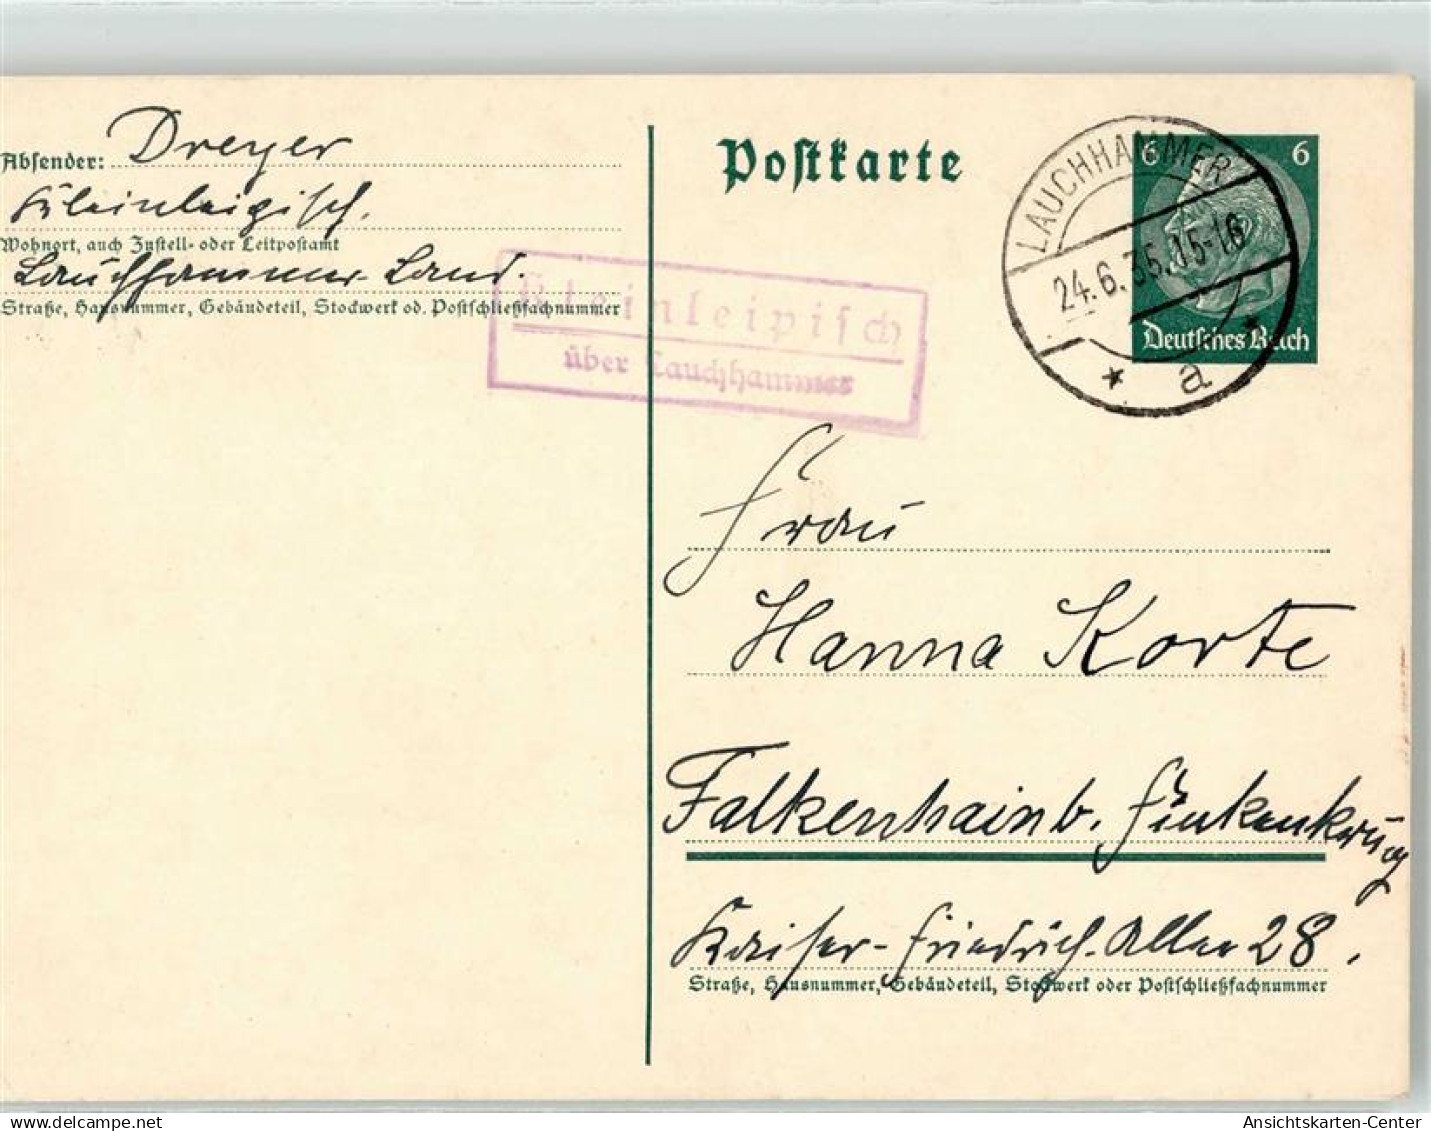 Absender: Dreyer
Kleinleipisch.
Wohnort, auch Zustell- oder Leitpostamt
Lauchhammer-Land.
Straße, Hausnummer, Gebäudeteil, Stockwerk od. Postschließfachnummer
Kleinleipisch
über Lauchhammer
Postkarte
LAUCHHAMMER
24.6.35.15-16
* a *
6 6
Deutsches Reich
Frau
Hanna Korte
Falkenhain b. Finkenkrug
Kaiser-Friedrich-Allee 28.
Straße, Hausnummer, Gebäudeteil, Stockwerk oder Postschließfachnummer
Ansichtskarten-Center